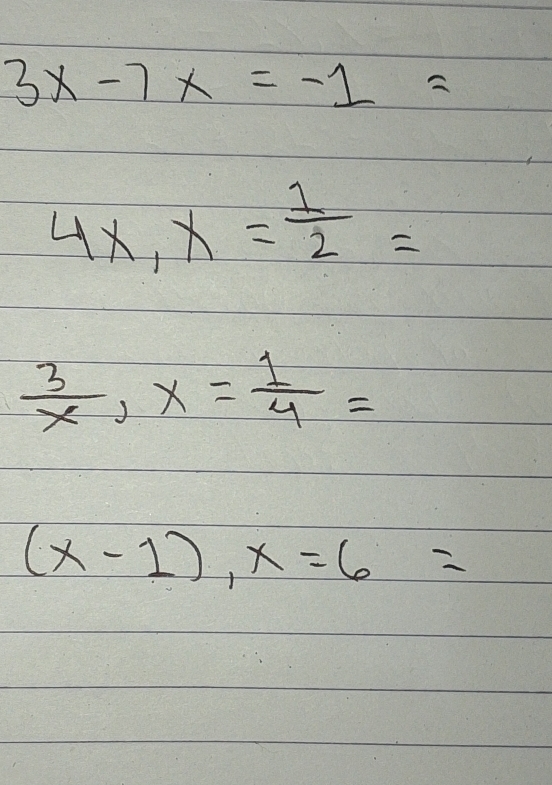 3x - 7x = -1 =
4x, x = 1/2 =
3/x, x = 1/4 =
(x - 1), x = 6 =